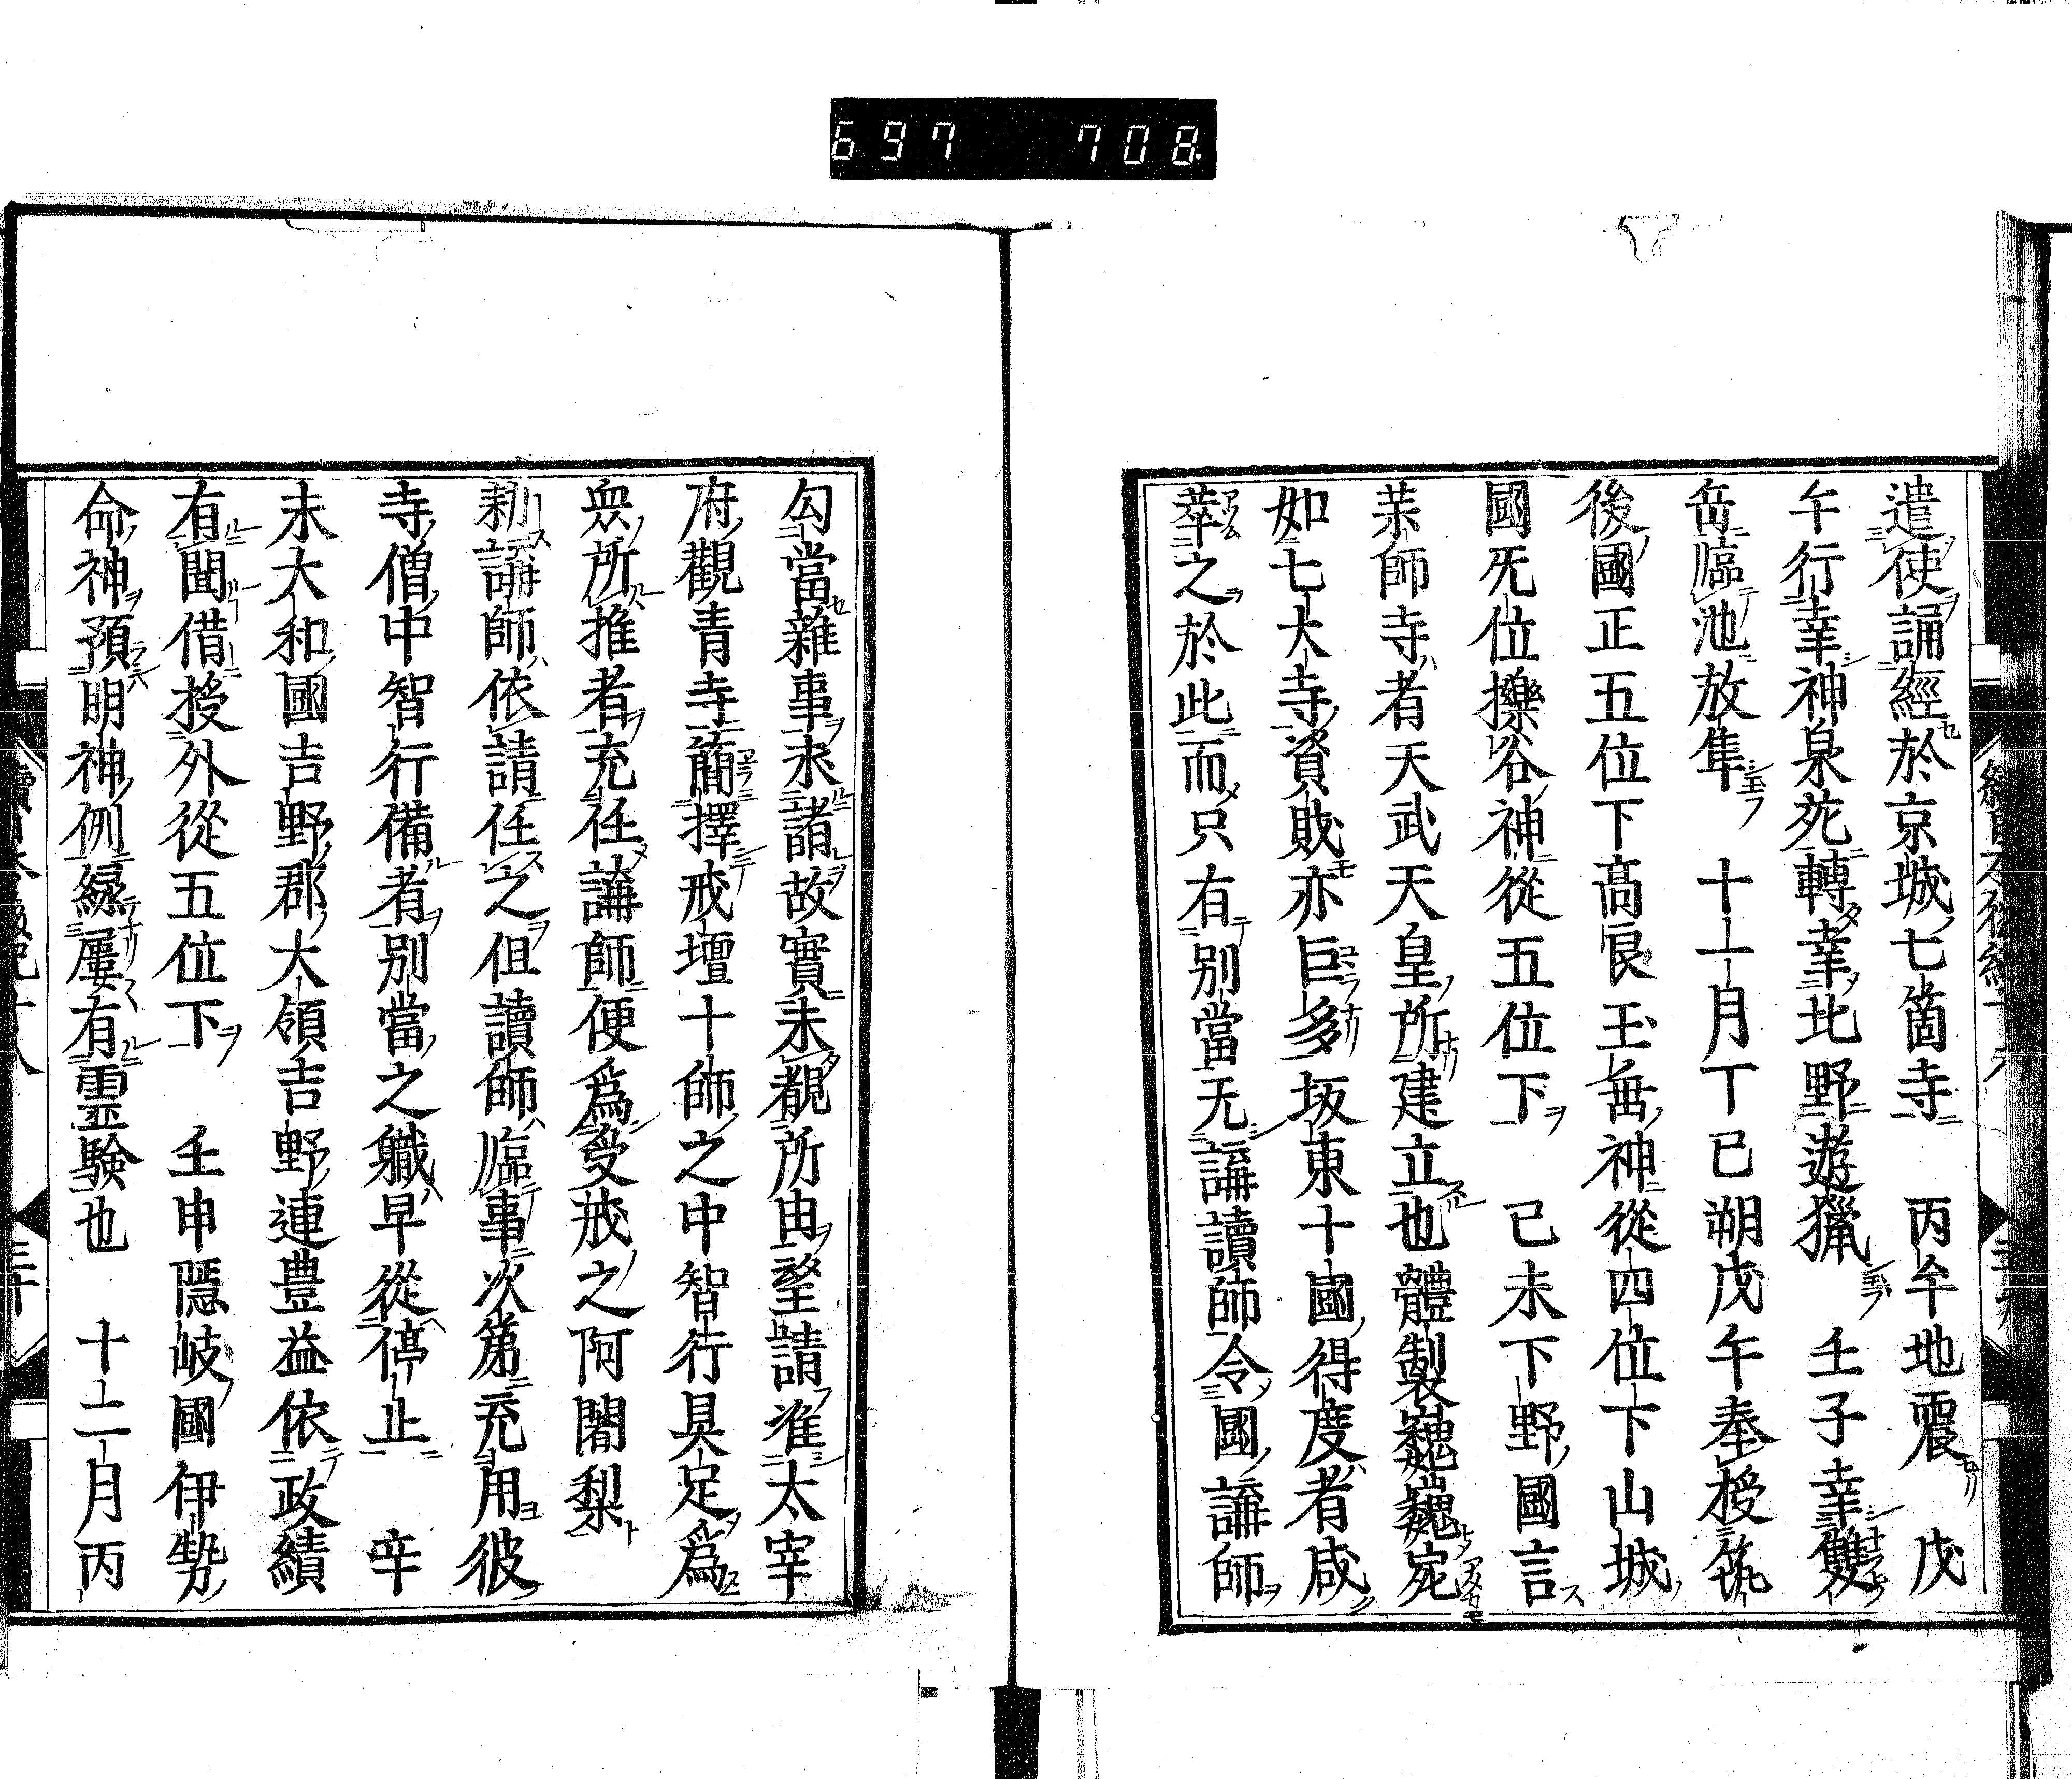 697 708
遣使誦經於京城七箇寺　丙午地震　戊
午行幸神泉苑轉幸北野遊獵　壬子幸雙
岳臨池放隼　十一月丁巳朔戊午奉授筑
後國正五位下高良玉垂神從四位下山城
國无位擽谷神從五位下　己未下野國言
藥師寺者天武天皇所建立也體製巍巍宛
如七大寺資財亦巨多坂東十國得度者咸
萃之於此而只有別當无講讀師令國講師
勾當雜事求諸故實未覩所由望請准太宰
府觀音寺簡擇戒壇十師之中智行具足爲
衆所推者充任講師便爲受戒之阿闍梨
制講師依請任之但讀師臨事次第充用彼
寺僧中智行備者別當之職早從停止　辛
未大和國吉野郡大領吉野連豊益依政績
有聞借授外從五位下　壬申隠岐國伊勢
命神預明神例縁屢有霊驗也　十二月丙